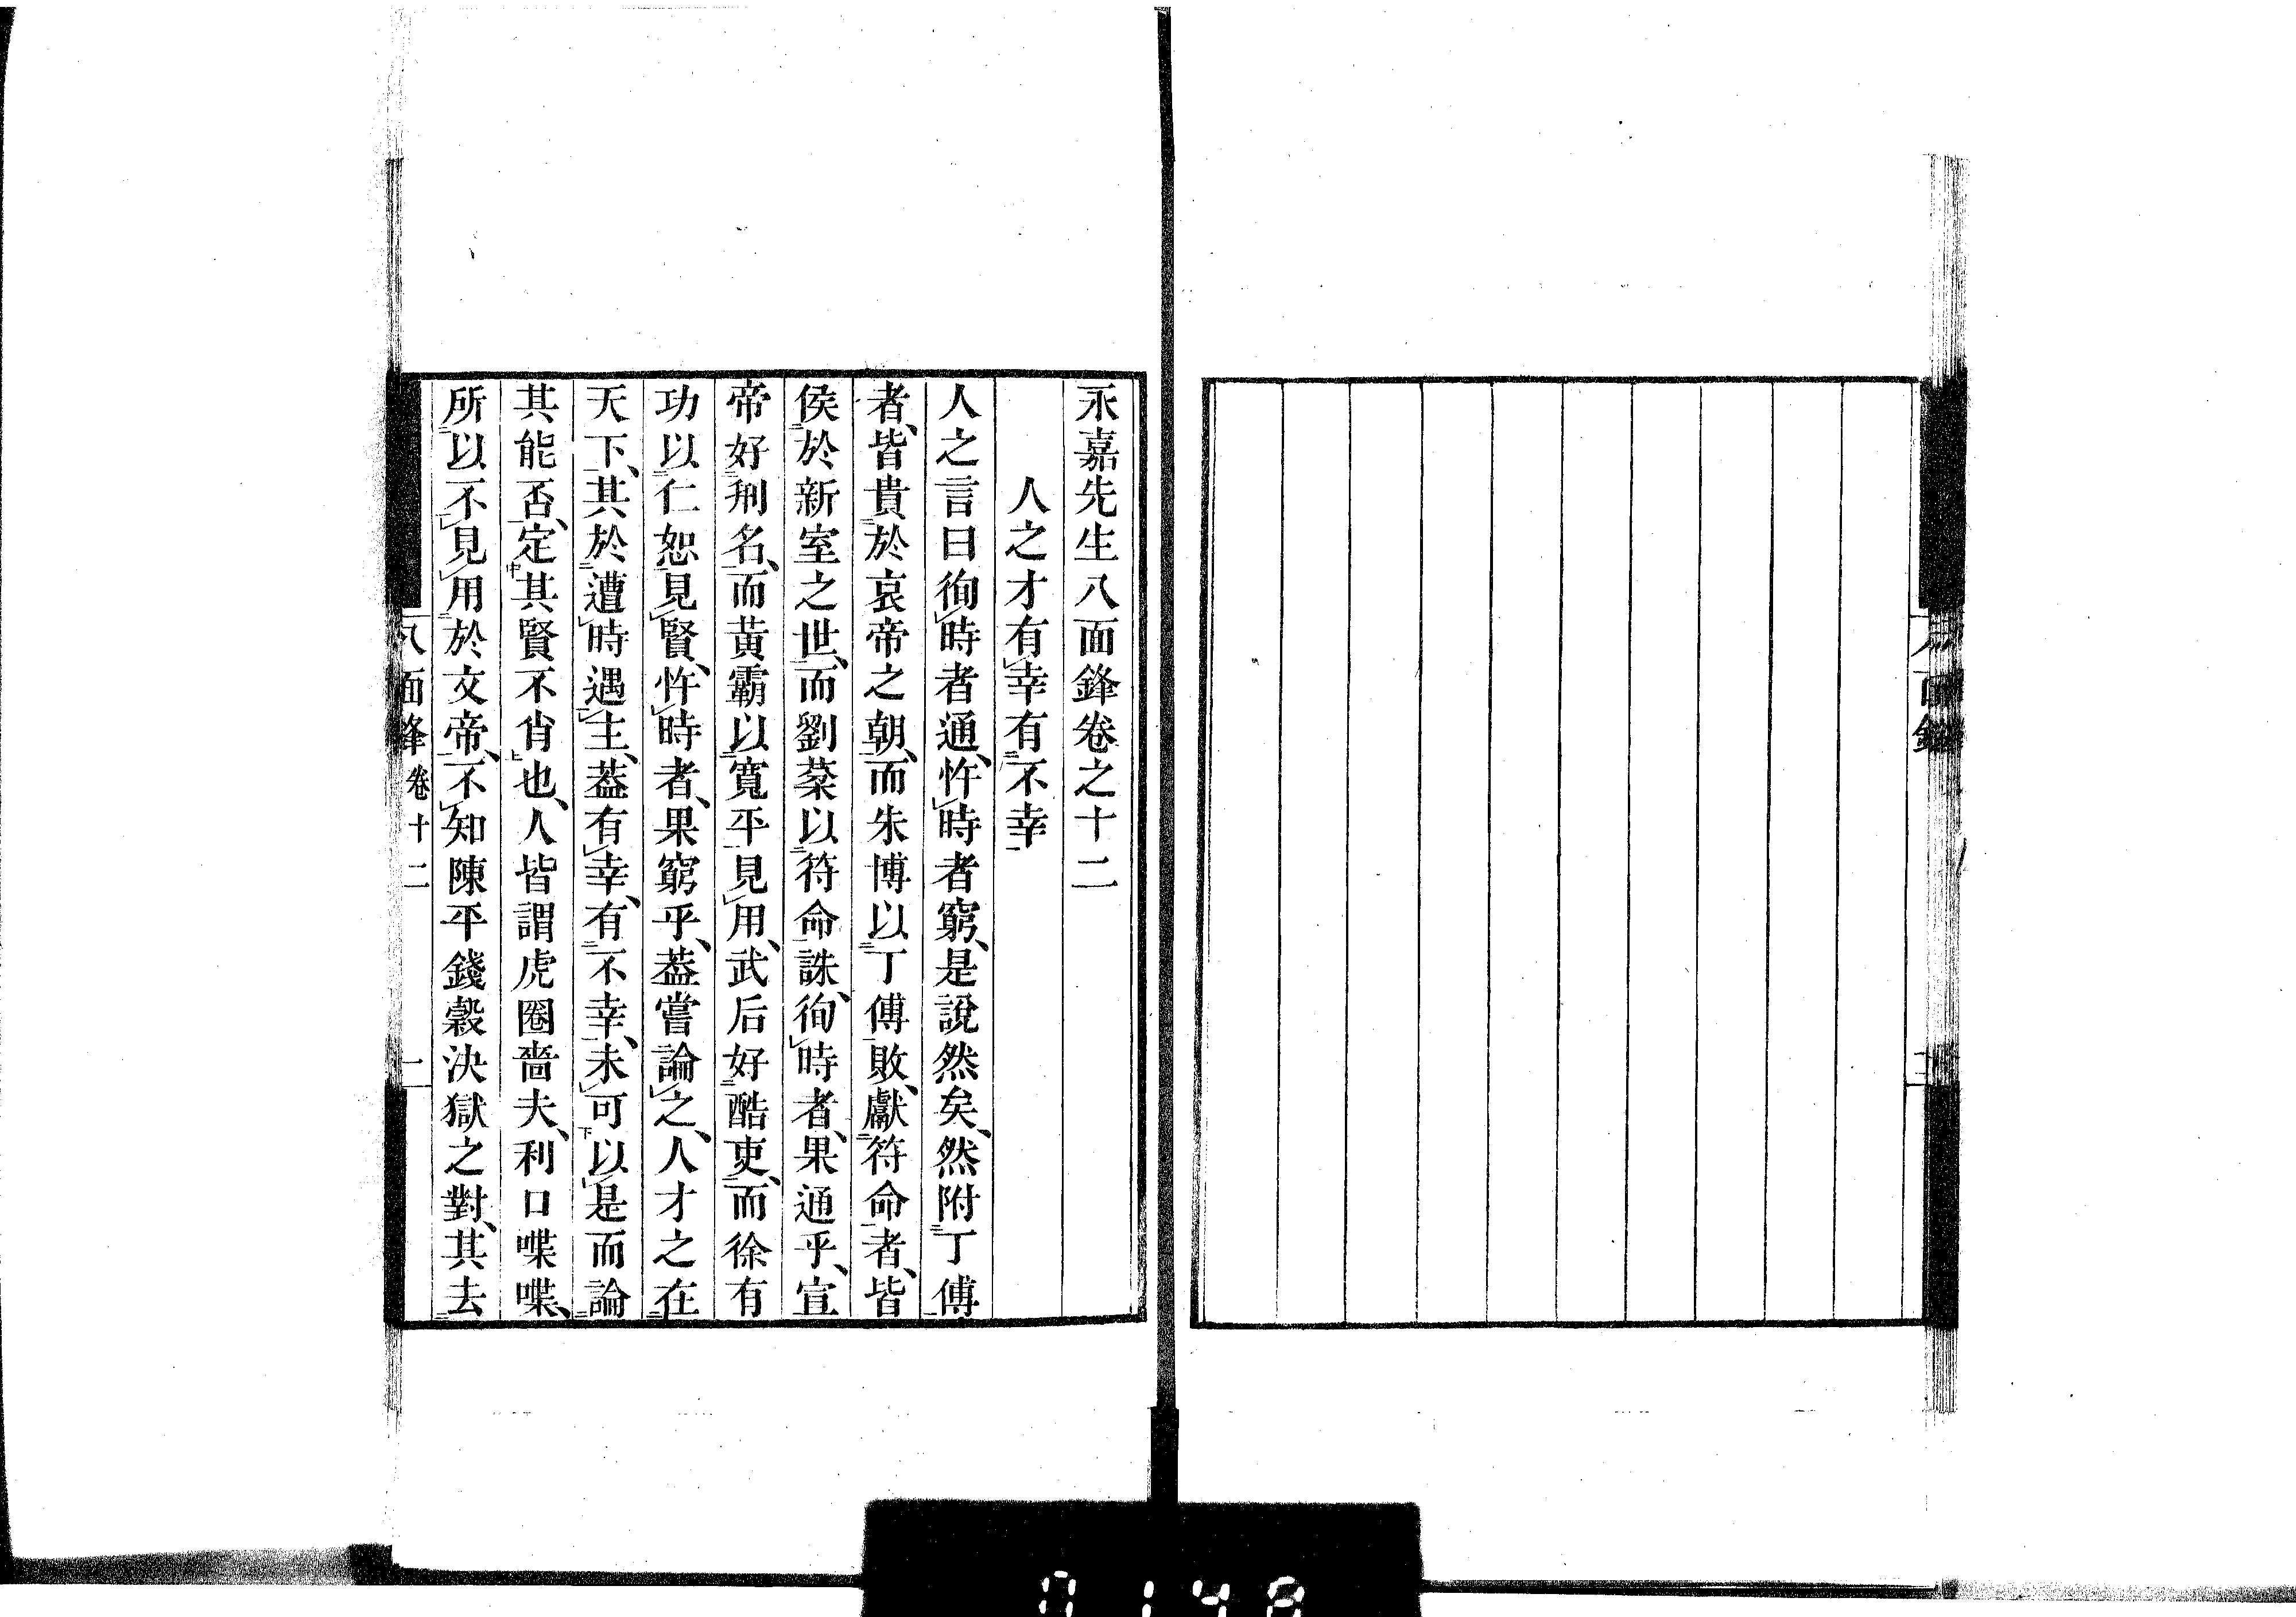 永嘉先生八面鋒卷之十二
人之才有幸有不幸
人之言曰徇時者通、忤時者窮、是說然矣、然附丁傅
者、皆貴於哀帝之朝、而朱博以丁傅敗、獻符命者、皆
侯於新室之世、而劉棻以符命誅、徇時者、果通乎、宣
帝好刑名、而黃霸以寬平見用、武后好酷吏、而徐有
功以仁恕見賢、忤時者、果窮乎、葢嘗論之、人才之在
天下、其於遭時遇主、葢有幸、有不幸、未可以是而論
其能否、定其賢不肖也、人皆謂虎圈嗇夫、利口喋喋、
所以不見用於文帝、不知陳平錢穀決獄之對、其去
八面鋒 卷十二 一
0148